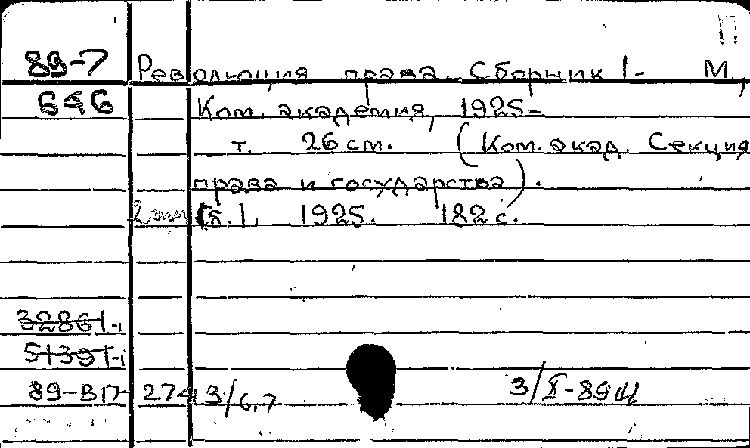 П
89-7 Революция права. Сборник 1- М.,
646 Ком. академия, 1925-
т. 26 см. (Ком. акад. Секция
права и государства).
[Т.] 1. 1925. 182 с.
32861-i
51391-i
89-ВП 274 3/6,7 3/X-89